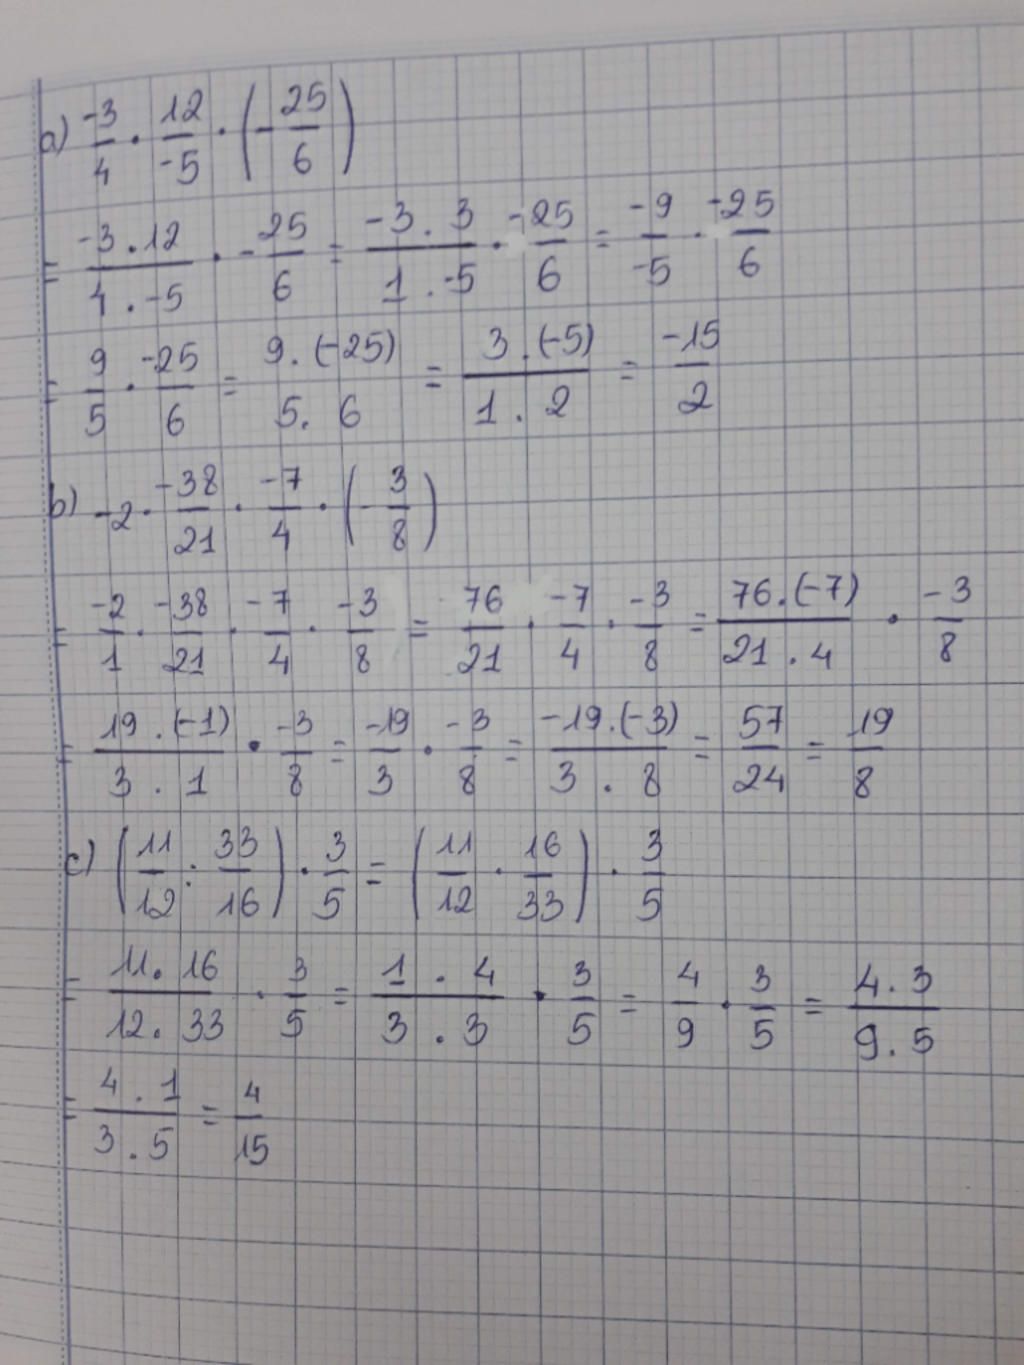 a) -3/4 . 12/-5 . (-25/6)
= -3.12/4.-5 . -25/6 = -3.3/1.-5 . -25/6 = -9/-5 . -25/6
= 9/5 . -25/6 = 9.(-25)/5.6 = 3.(-5)/1.2 = -15/2
b) -2 . -38/21 . -7/4 . (-3/8)
= -2/1 . -38/21 . -7/4 . -3/8 = 76/21 . -7/4 . -3/8 = 76.(-7)/21.4 . -3/8
= 19.(-1)/3.1 . -3/8 = -19/3 . -3/8 = -19.(-3)/3.8 = 57/24 = 19/8
c) (11/12 : 33/16) . 3/5 = (11/12 . 16/33) . 3/5
= 11.16/12.33 . 3/5 = 1.4/3.3 . 3/5 = 4/9 . 3/5 = 4.3/9.5
= 4.1/3.5 = 4/15